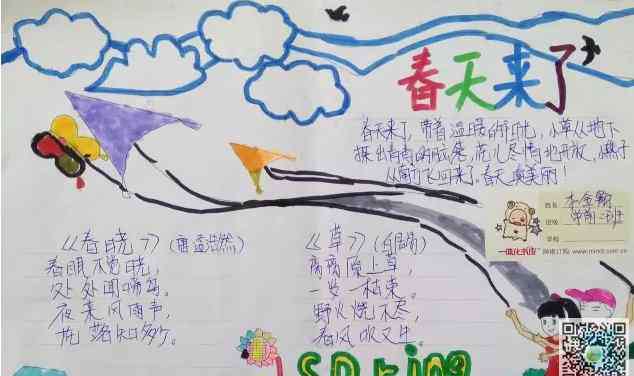 春天来了
春天来了,带着温暖的阳光,小草从地下
探出青青的脑袋,花儿尽情地开放,小燕子
从南方飞回来了。春天真美丽!
姓名
班级
学前二班
学校
一体化书店
《春晓》(唐孟浩然)
春眠不觉晓,
处处闻啼鸟。
夜来风雨声,
花落知多少。
《草》(白居易)
离离原上草,
一岁一枯荣。
野火烧不尽,
春风吹又生。
Spring